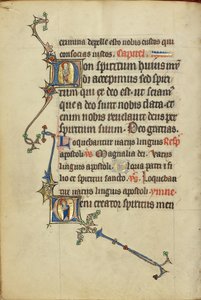 termina depelle esto nobis custos qui
consocias iustos. Capitulum
Non spiritum huius mun
di accepimus sed spiri
tum qui ex deo est ut sciam
que a deo sunt nobis
nobis reuelauit deus per
spiritum suum. Deo gratias.
Loquebantur uariis linguis
apostoli. Magnalia dei. Uariis
linguis apostoli. Gloria patri et fi
lio et spiritui sancto. Loque
bantur uariis linguis apostoli. ymne
Ueni creator spiritus men